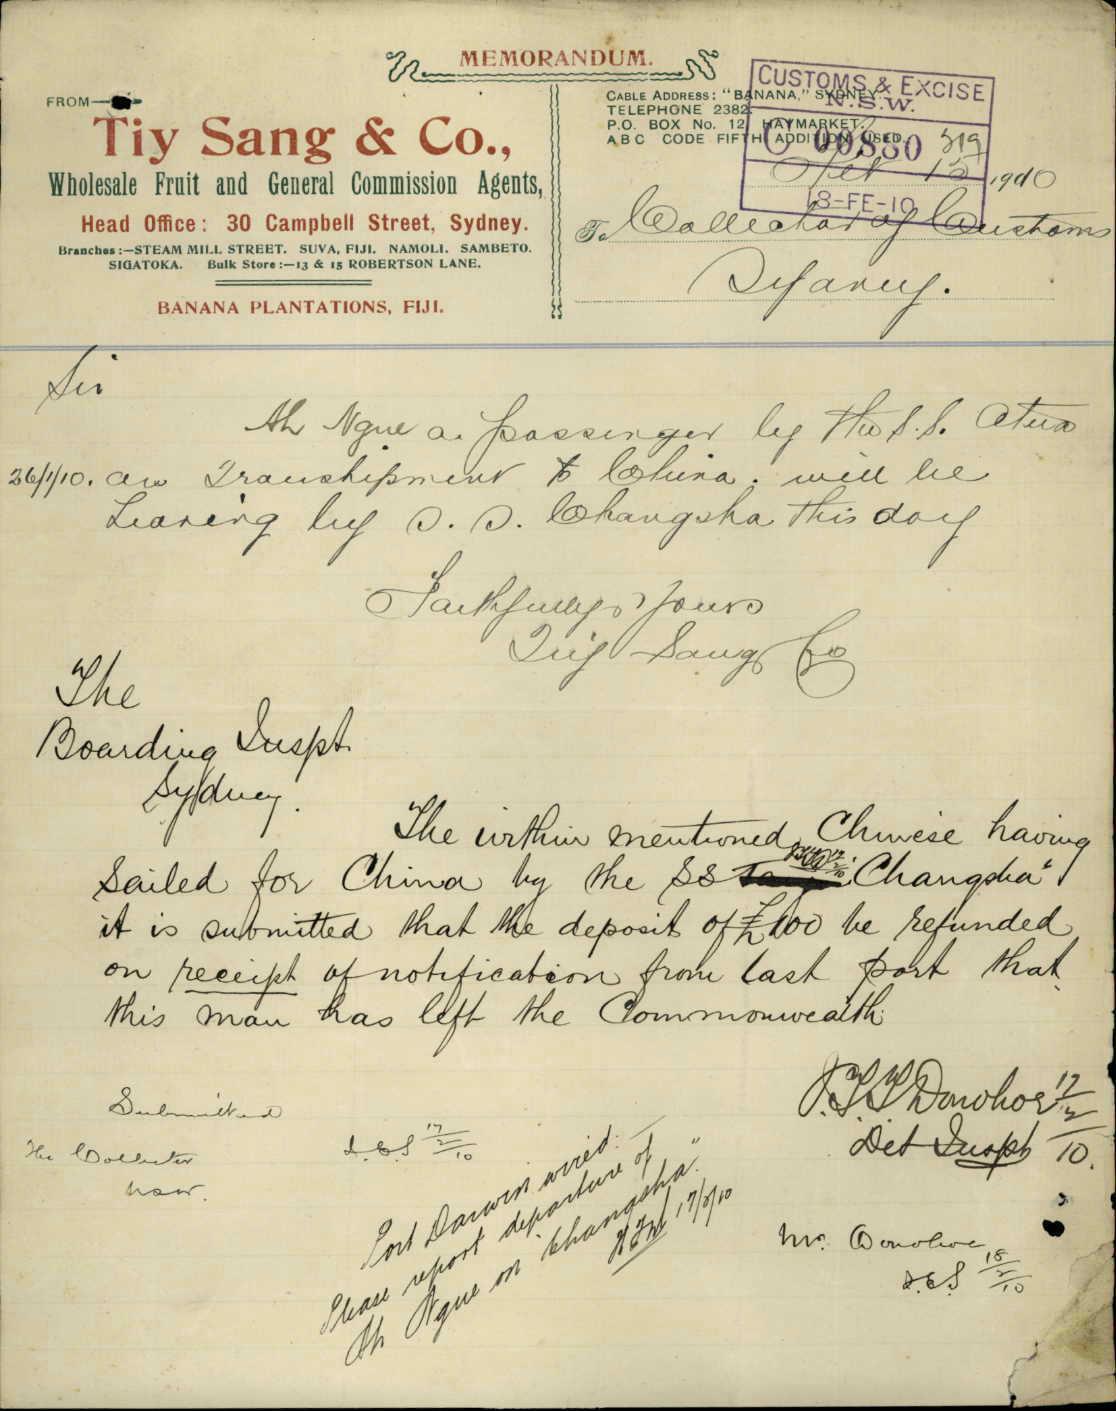 MEMORANDUM.
FROM
Tiy Sang & Co.,
Wholesale Fruit and General Commission Agents,
Head Office: 30 Campbell Street, Sydney.
Branches:—STEAM MILL STREET. SUVA, FIJI. NAMOLI. SAMBETO.
SIGATOKA. Bulk Store:—13 & 15 ROBERTSON LANE.
BANANA PLANTATIONS, FIJI.
CABLE ADDRESS: "BANANA," SYDNEY.
TELEPHONE 2382.
P.O. BOX No. 12, HAYMARKET.
A B C CODE FIFTH ADDITION USED.
CUSTOMS & EXCISE
N.S.W.
C 00880
18-FE-10
319
15, 1910
To Collector of Customs
Sydney.
Sir
Ah Ngue a passenger by the S.S. Atua
26/1/10. on Transhipment to China. will be
Leaving by S. S. Changsha this day
Faithfully Yours
Tiy Sang Co
The
Boarding Inspt.
Sydney.
The within mentioned Chinese having
sailed for China by the SS "Changsha"
it is submitted that the deposit of £100 be refunded
on receipt of notification from last port that
this man has left the Commonwealth.
J.T.T. Donohoe 17/2/10.
Det Inspt
Submitted
The Collector
NSW.
17/2/10
Port Darwin wired:—
"Please report departure of
Ah Ngue on Changsha."
17/2/10
Mr. Donohoe
18/2/10